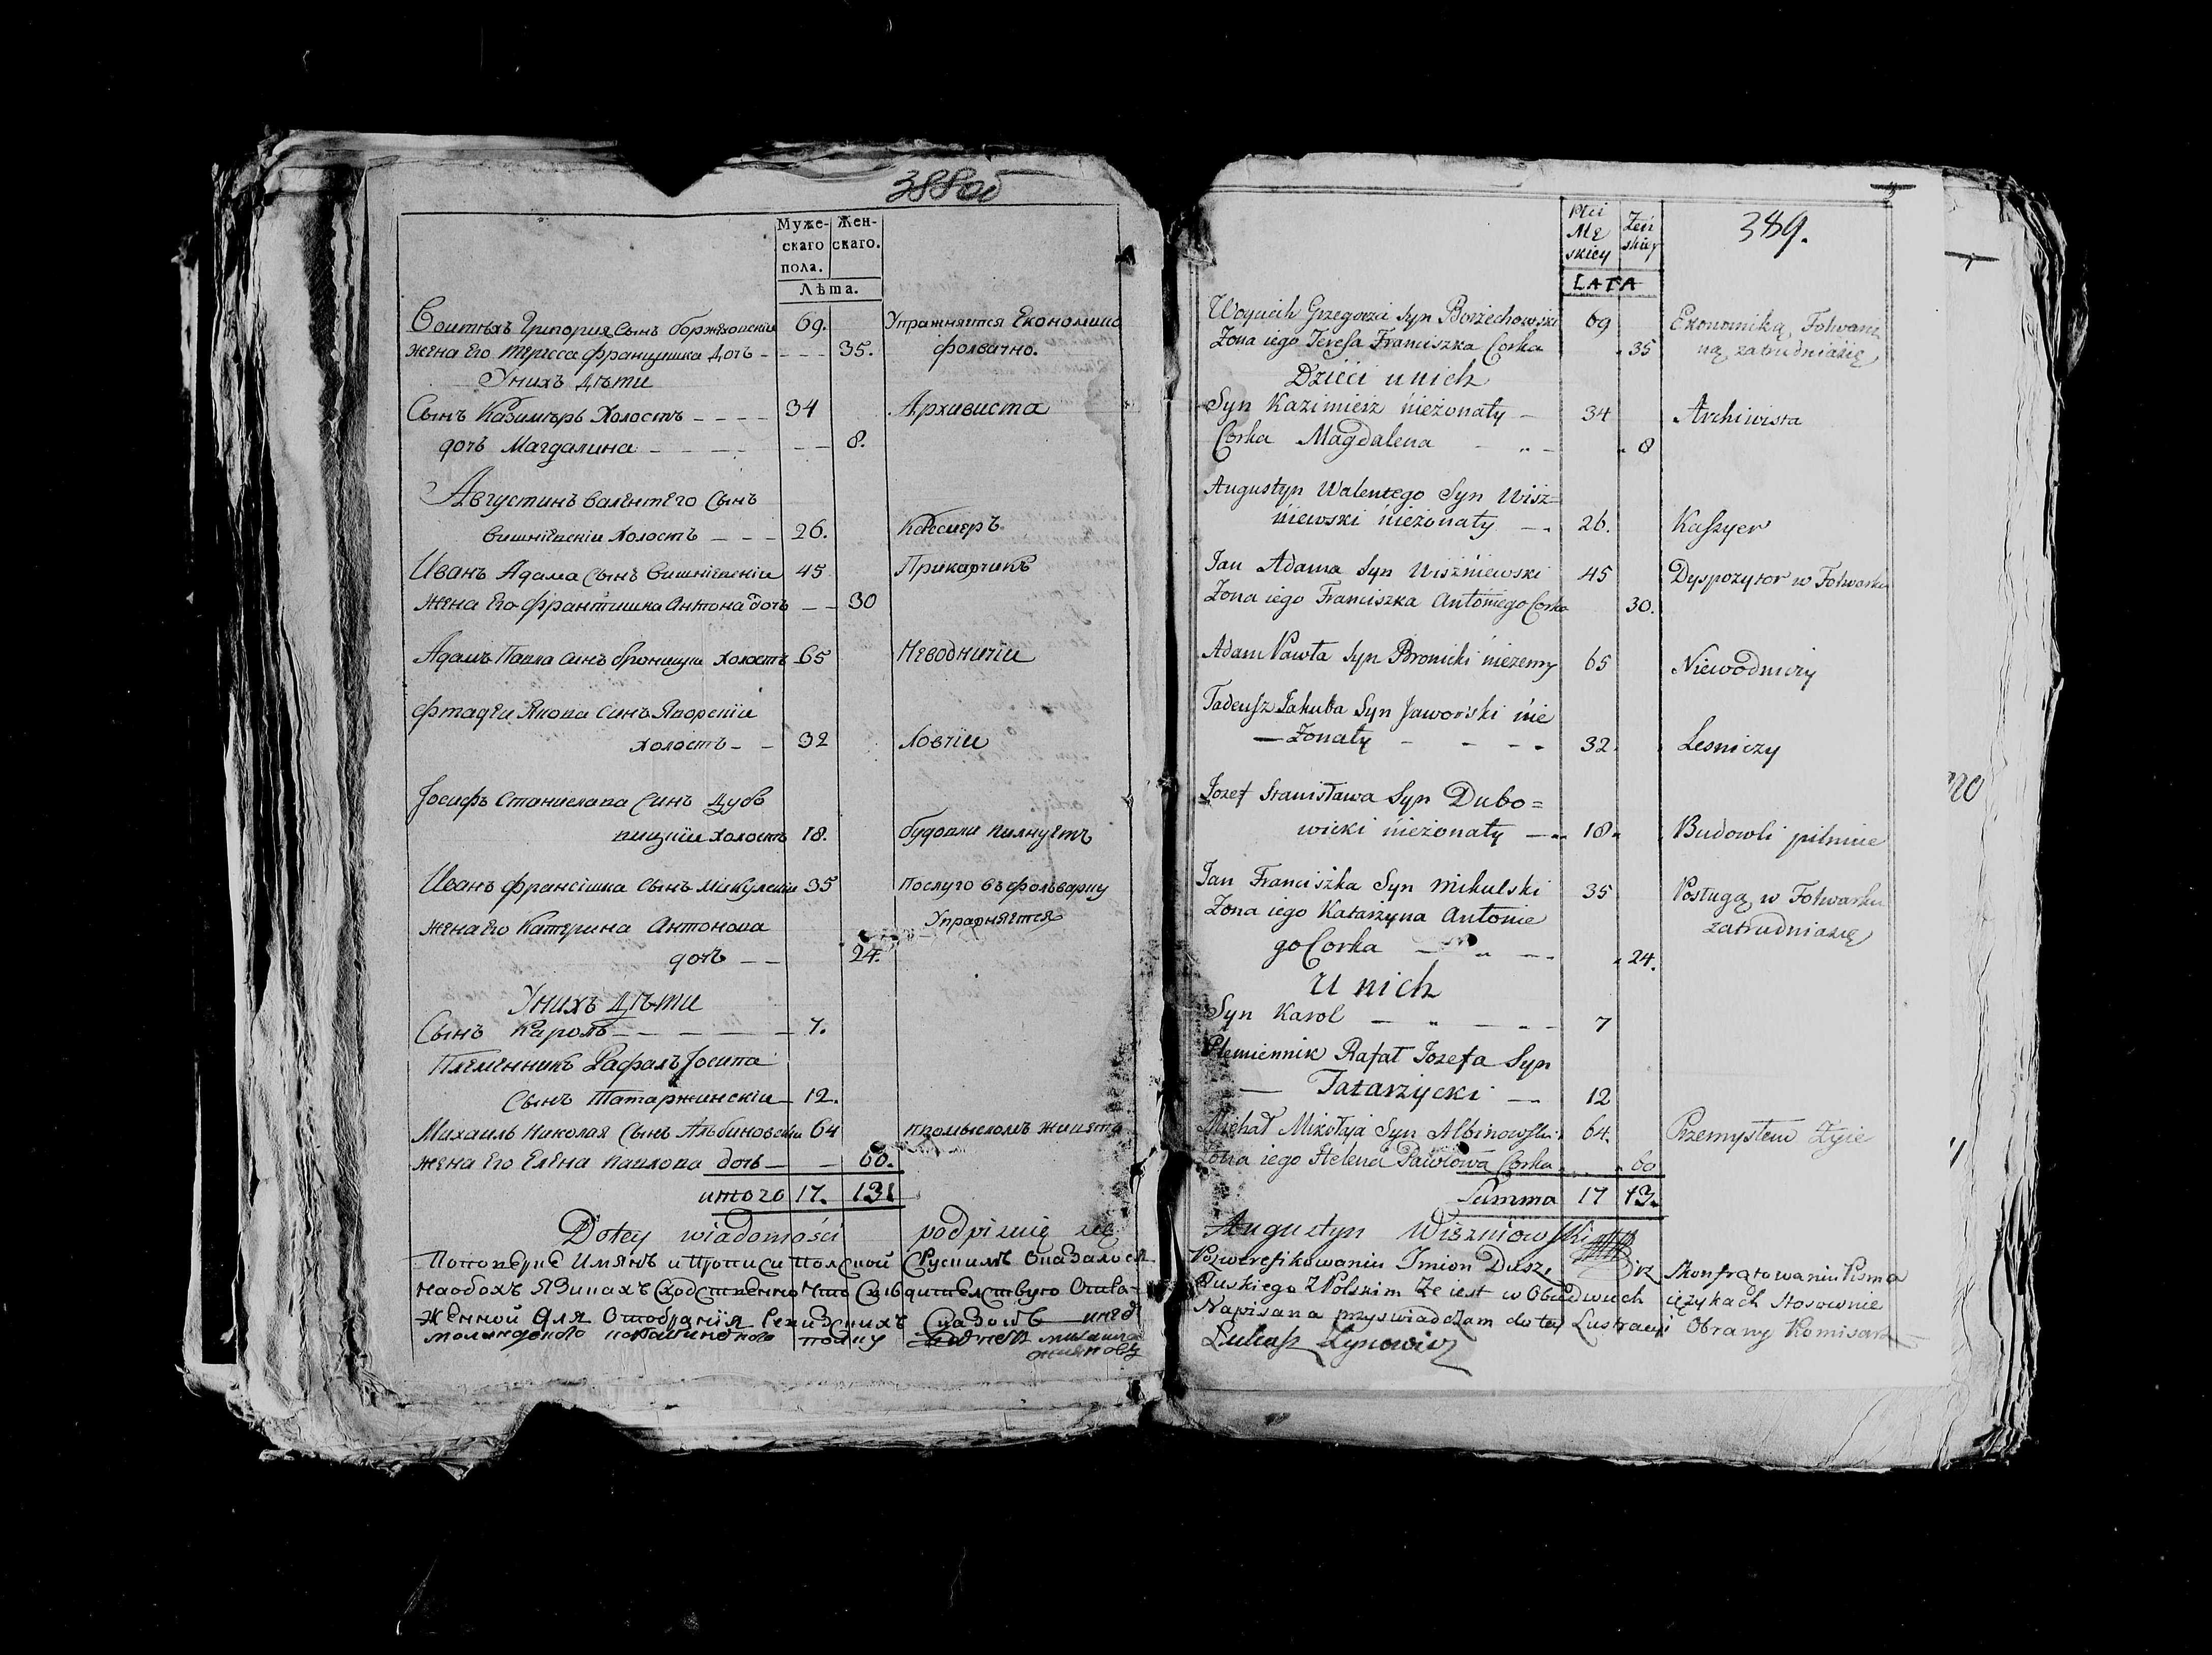 388об
Муже- Жен-
скаго скаго.
пола.
Лѣта.
Воитѣхъ Григория Сынъ Боржеховскiи 69. Упражняется Економиею
жена Его Тереса францишка Дочь - - - - 35. фолвачно.
Унихъ дѣти
Сынъ Казимѣръ Холостъ - - - - 34 Архивиста
дочь Магдалина - - - - - - 8.
Августинъ валентего Сынъ
Вишнiевскiи Холостъ - - - 26. Касиеръ
Иванъ Адама Сынъ Вишнiевскiи 45 Прикарчикъ
Жена Его франтишка Антона дочь - - 30
Адамъ Павла Синъ броницкiи холостъ 65 Неводничiи
Фтадеи Якова Синъ Яворскiи
холостъ - - 32 Ловчiи
Iосифъ Станислава Синъ Дубо
вицкiи холостъ 18. будовли пилнуетъ
Иванъ франсiшка Сынъ Микулскiи 35 послуго въ фольварку
жена Его Катерина Антонова Упражняется
дочь - - 24.
Унихъ Дѣти
Сынъ Кароль - - - - - 7.
Племенникъ Рафалъ Iосипа
Сынъ Татаржинскiи - 12.
Михаилъ Николая Сынъ Альбиновскiи 64 промысломъ жиiетъ
жена Его Елена павлова дочь - - 60.
итого 17. 131
Dotey wiadomości podpisuię się
Поповерце Имянъ и Прописи Полской СРускимъ Оказалося
Наобохъ Языкахъ Сходственно Что Свiдителствую
Женной Для Отобранiя Ревизскихъ Сказокъ
389.
Płci Żeń
Mę skiey
skiey
LATA
Woyciech Grzegorza Syn Borzechowski 69 Ekonomiką Folwarcz
Zona iego Teresa Franciszka Corka " 35 ną zatrudnia się
Dzieci u nich
Syn Kazimierz nieżonaty - 34 Archiwista
Corka Magdalena - " - " 8
Augustyn Walentego Syn Wisz=
niewski nieżonaty - " 26. Kassyer
Jan Adama Syn Wiszniewski 45 Dyspozytor w Folwarku
Zona iego Franciszka Antoniego Corka 30.
Adam Pawła Syn Bronicki nieżenny 65 Niewodniczy
Tadeusz Jakuba Syn Jaworski nie
- Żonaty - - - - 32. Lesniczy
Jozef Stanisława Syn Dubo=
wicki nieżonaty - " 18 " Budowli pilnuie
Jan Franciszka Syn Mikulski 35 Posługą w Folwarku
Zona iego Katarzyna Antonie zatrudnia się
go Corka - " - " 24.
U nich
Syn Karol - " - " - 7
Plemiennik Rafał Jozefa Syn
- Tatarzycki - 12
Michał Mikołaja Syn Albinowski 64. Przemysłem Żyie
Zona iego Helena Pawłowa Corka " 60
Summa 17 13.
Augustyn Wiszniowski
Pozwerefikowaniu Imion Dusz, i z Skonfrątowaniu Pisma
Ruskiego Z Polskim Ze iest w Obudwuch ięzykach Stosownie
Napisana przyswiadczam do tey Lustracyi Obrany Komisarz
Łukasz Łynowicz